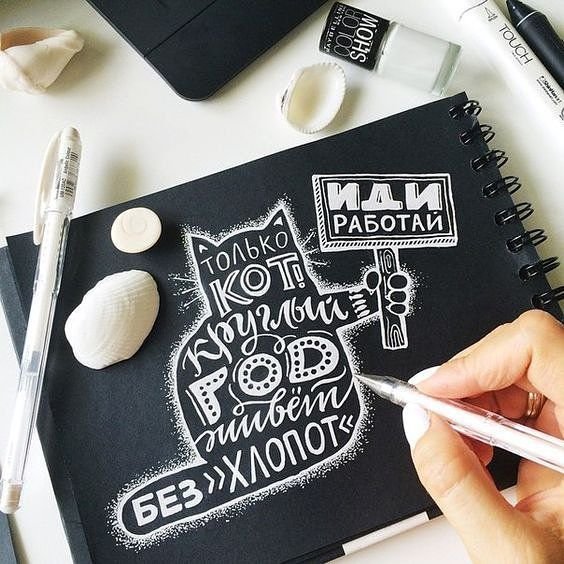 ИДИ
РАБОТАЙ
ТОЛЬКО
КОТ!
круглый
ГОД
живёт
БЕЗ »ХЛОПОТ«
MAYBELLINE
COLOR
SHOW
TOUCH